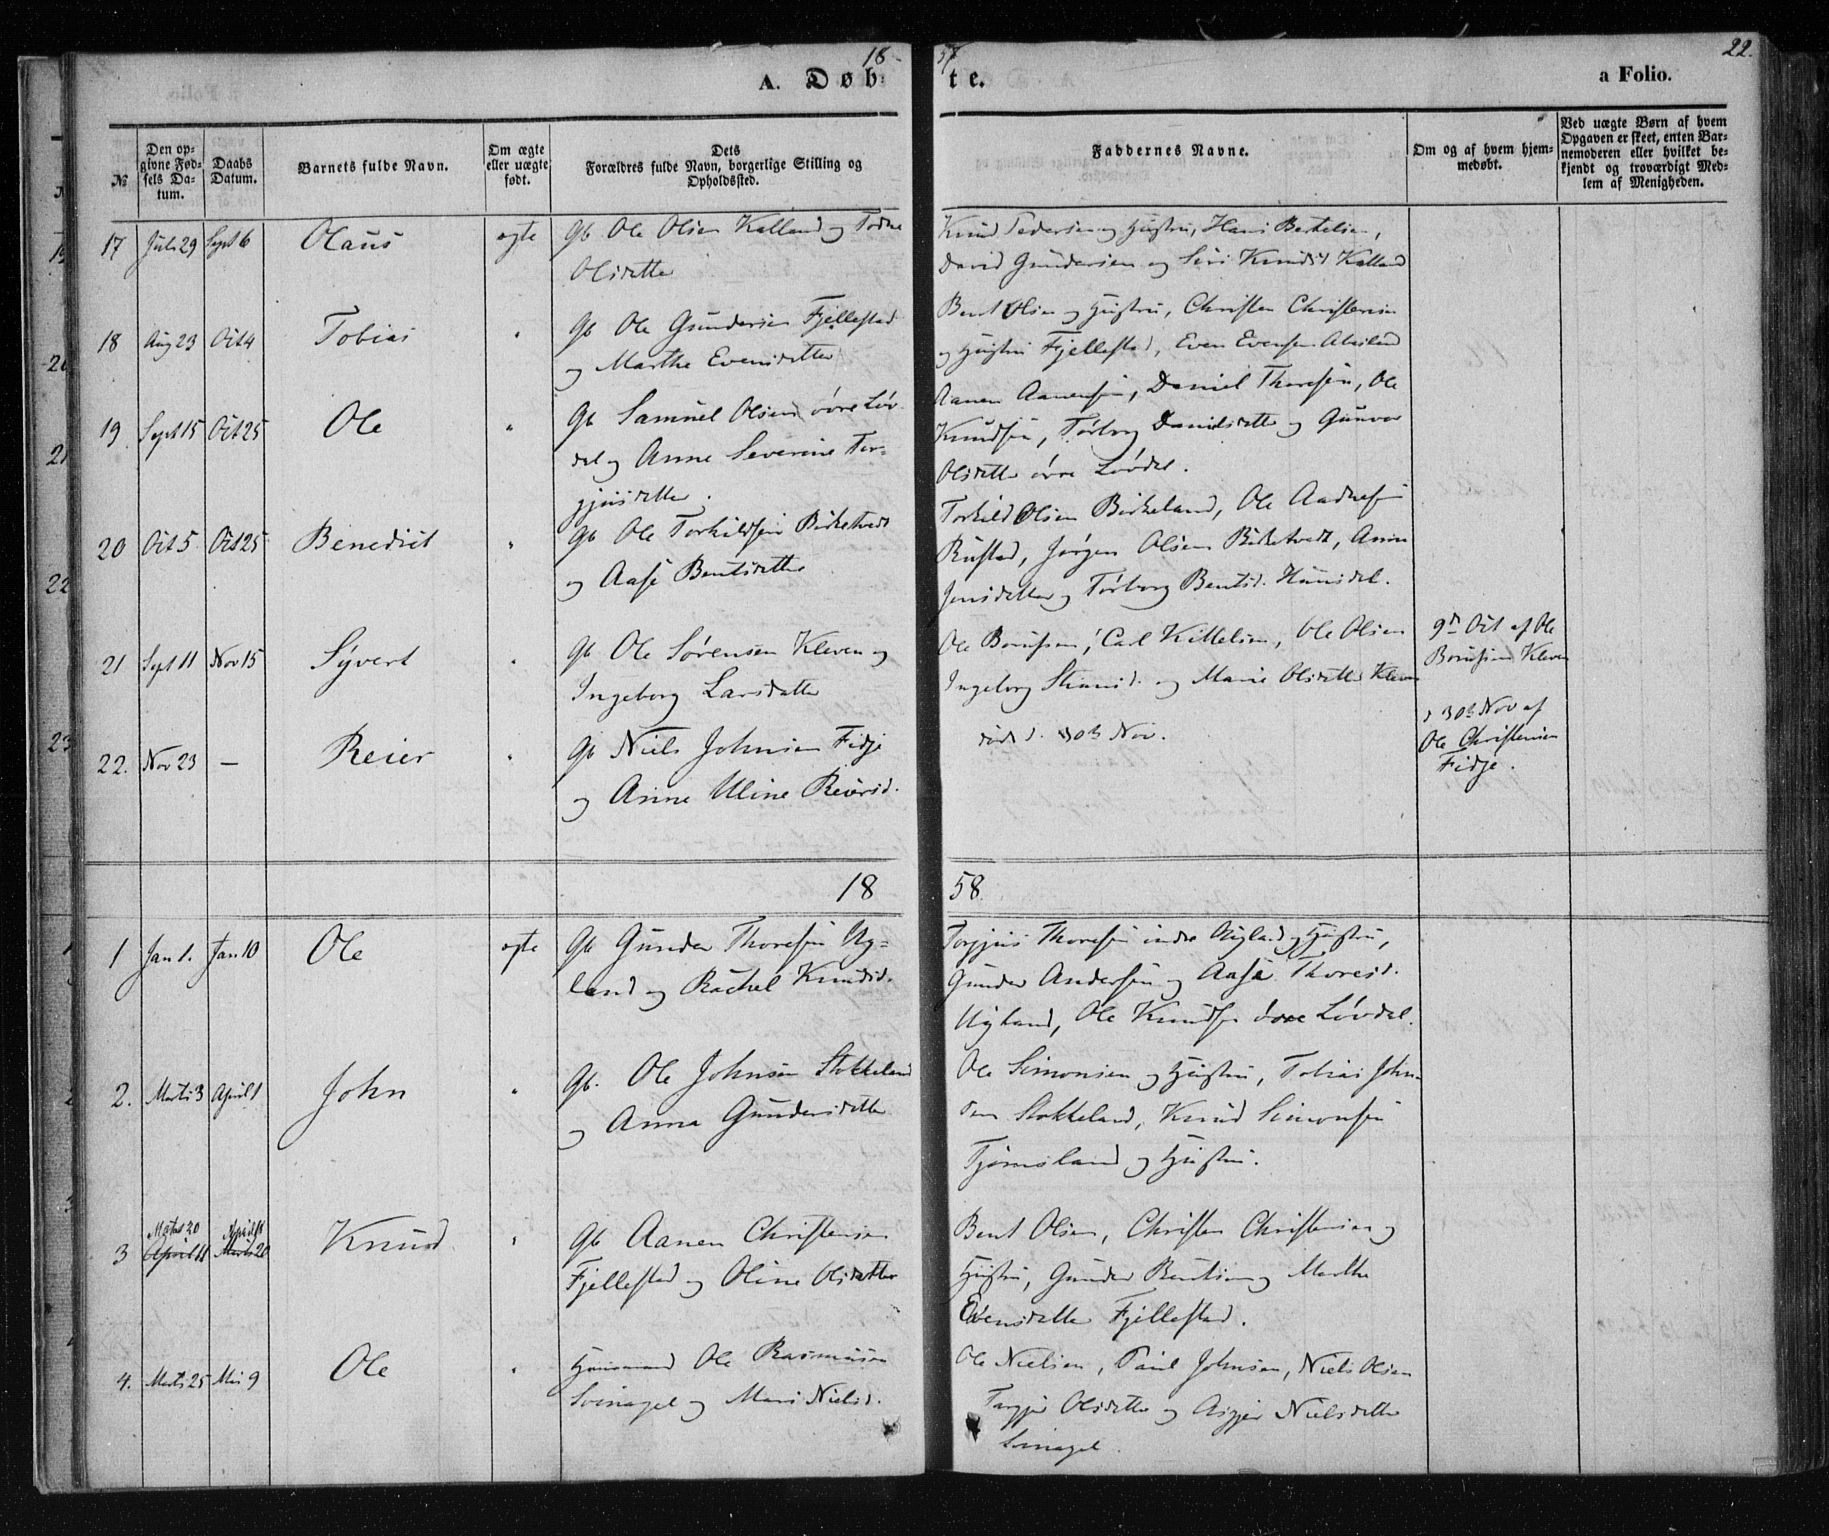 18 57 22.
A. Døb- te. a Folio.
No
Den op-
givne Fød-
sels Da-
tum.
Daabs
Datum.
Barnets fulde Navn.
Om ægte
eller uægte
født.
Dets
Forældres fulde Navn, borgerlige Stilling og
Opholdssted.
Faddernes Navne.
Om og af hvem hjem-
medøbt.
Ved uægte Børn af hvem
Opgaven er skeet, enten Bar-
nemoderen eller hvilket be-
kjendt og troværdigt Med-
lem af Menigheden.
17 Juli 29 Sept 6 Olaus ægte Gb Ole Olsen Kalland og
Olsdatter
Knud Pedersen og Hustru, Hans Bertelsen,
David Gundersen og Siri Knudsd Kalland
18 Aug 23 Oct 4 Tobias " Gb Ole Gundersen Fjellestad
og Marthe Evensdatter
Bent Olsen og Hustru, Christen Christensen
og Hustru Fjellestad, Even Evensen
19 Sept 15 Oct 25 Ole " Gb Samuel Olsen øvre Løv-
del og Anne Severine Ter-
gjusdatter.
Aanen Aanensen, Daniel Thoresen, Ole
Knudsen, Torborg Danielsdatter og Gunvor
Olsdatter øvre Løvdel.
20 Oct 5 Oct 25 Benedict " Gb Ole Torkildsen Birketvedt
og Aase Bentsdatter
Torkild Olsen Birkeland, Ole Aadnesen
Rustad, Jørgen Olsen Birketvedt, Anne
Jensdatter og Torborg Bentsd. Hunsdal.
21 Sept 11 Nov 15 Syvert " Gb Ole Sørensen Kleven og
Ingeborg Larsdatter
Ole Berntsen, Carl Kittelsen, Ole Olsen
Ingeborg og Marie Olsdatter Kleven
9n Oct af Ole
Kleven
22. Nov 23 — Reier " Gb Niels Johnsen Fidje
og Anne Uline Reiersd.
død d. 30te Nov.
d 30te Nov af
Ole Christensen
Fidje.
18 58.
1 Jan 1. Jan 10 Ole ægte Gb Gunder Thoresen Ug-
land og Rachel Knudsd.
Torgjus Thoresen indre Ugland og Hustru,
Gunder Andersen og Aase Thoresd.
Ugland, Ole Knudsen øvre Løvdel.
2. Marts 3 April 1 John " Gb. Ole Johnsen Stokkeland
og Anna Gundersdatter
Ole Simonsen og Hustru, Tobias John-
sen Stokkeland, Knud Simonsen
Tjomsland og Hustru.
Marts 20 April 11
3 April 11 Marts 20 Knud " Gb Aanen Christensen
Fjellestad og Oline Olsdatter
Bent Olsen, Christen Christensen og
Hustru, Gunder Bentsen og Marthe
Evensdatter Fjellestad.
4. Marts 25 Mai 9 Ole " Huusmand Ole Rasmusen
Svinagel og Mari Nielsd.
Ole Nielsen, Paul Johnsen, Niels Olsen
Olsdatter og Nielsdatter
Svinagel.